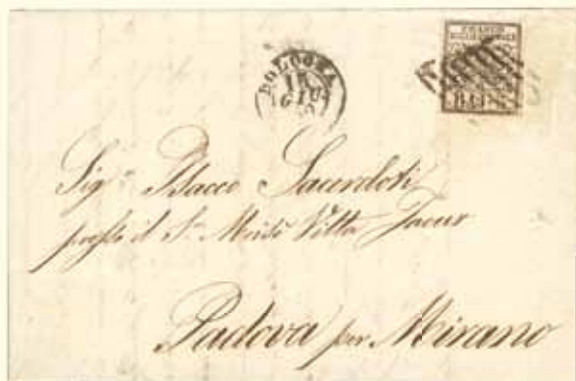 BOLOGNA
15
GIU
FRANCO
BAJ
Sig.r Isacco Sacerdoti
presso il S.r Moisè Vitta Jacur
Padova per Mirano